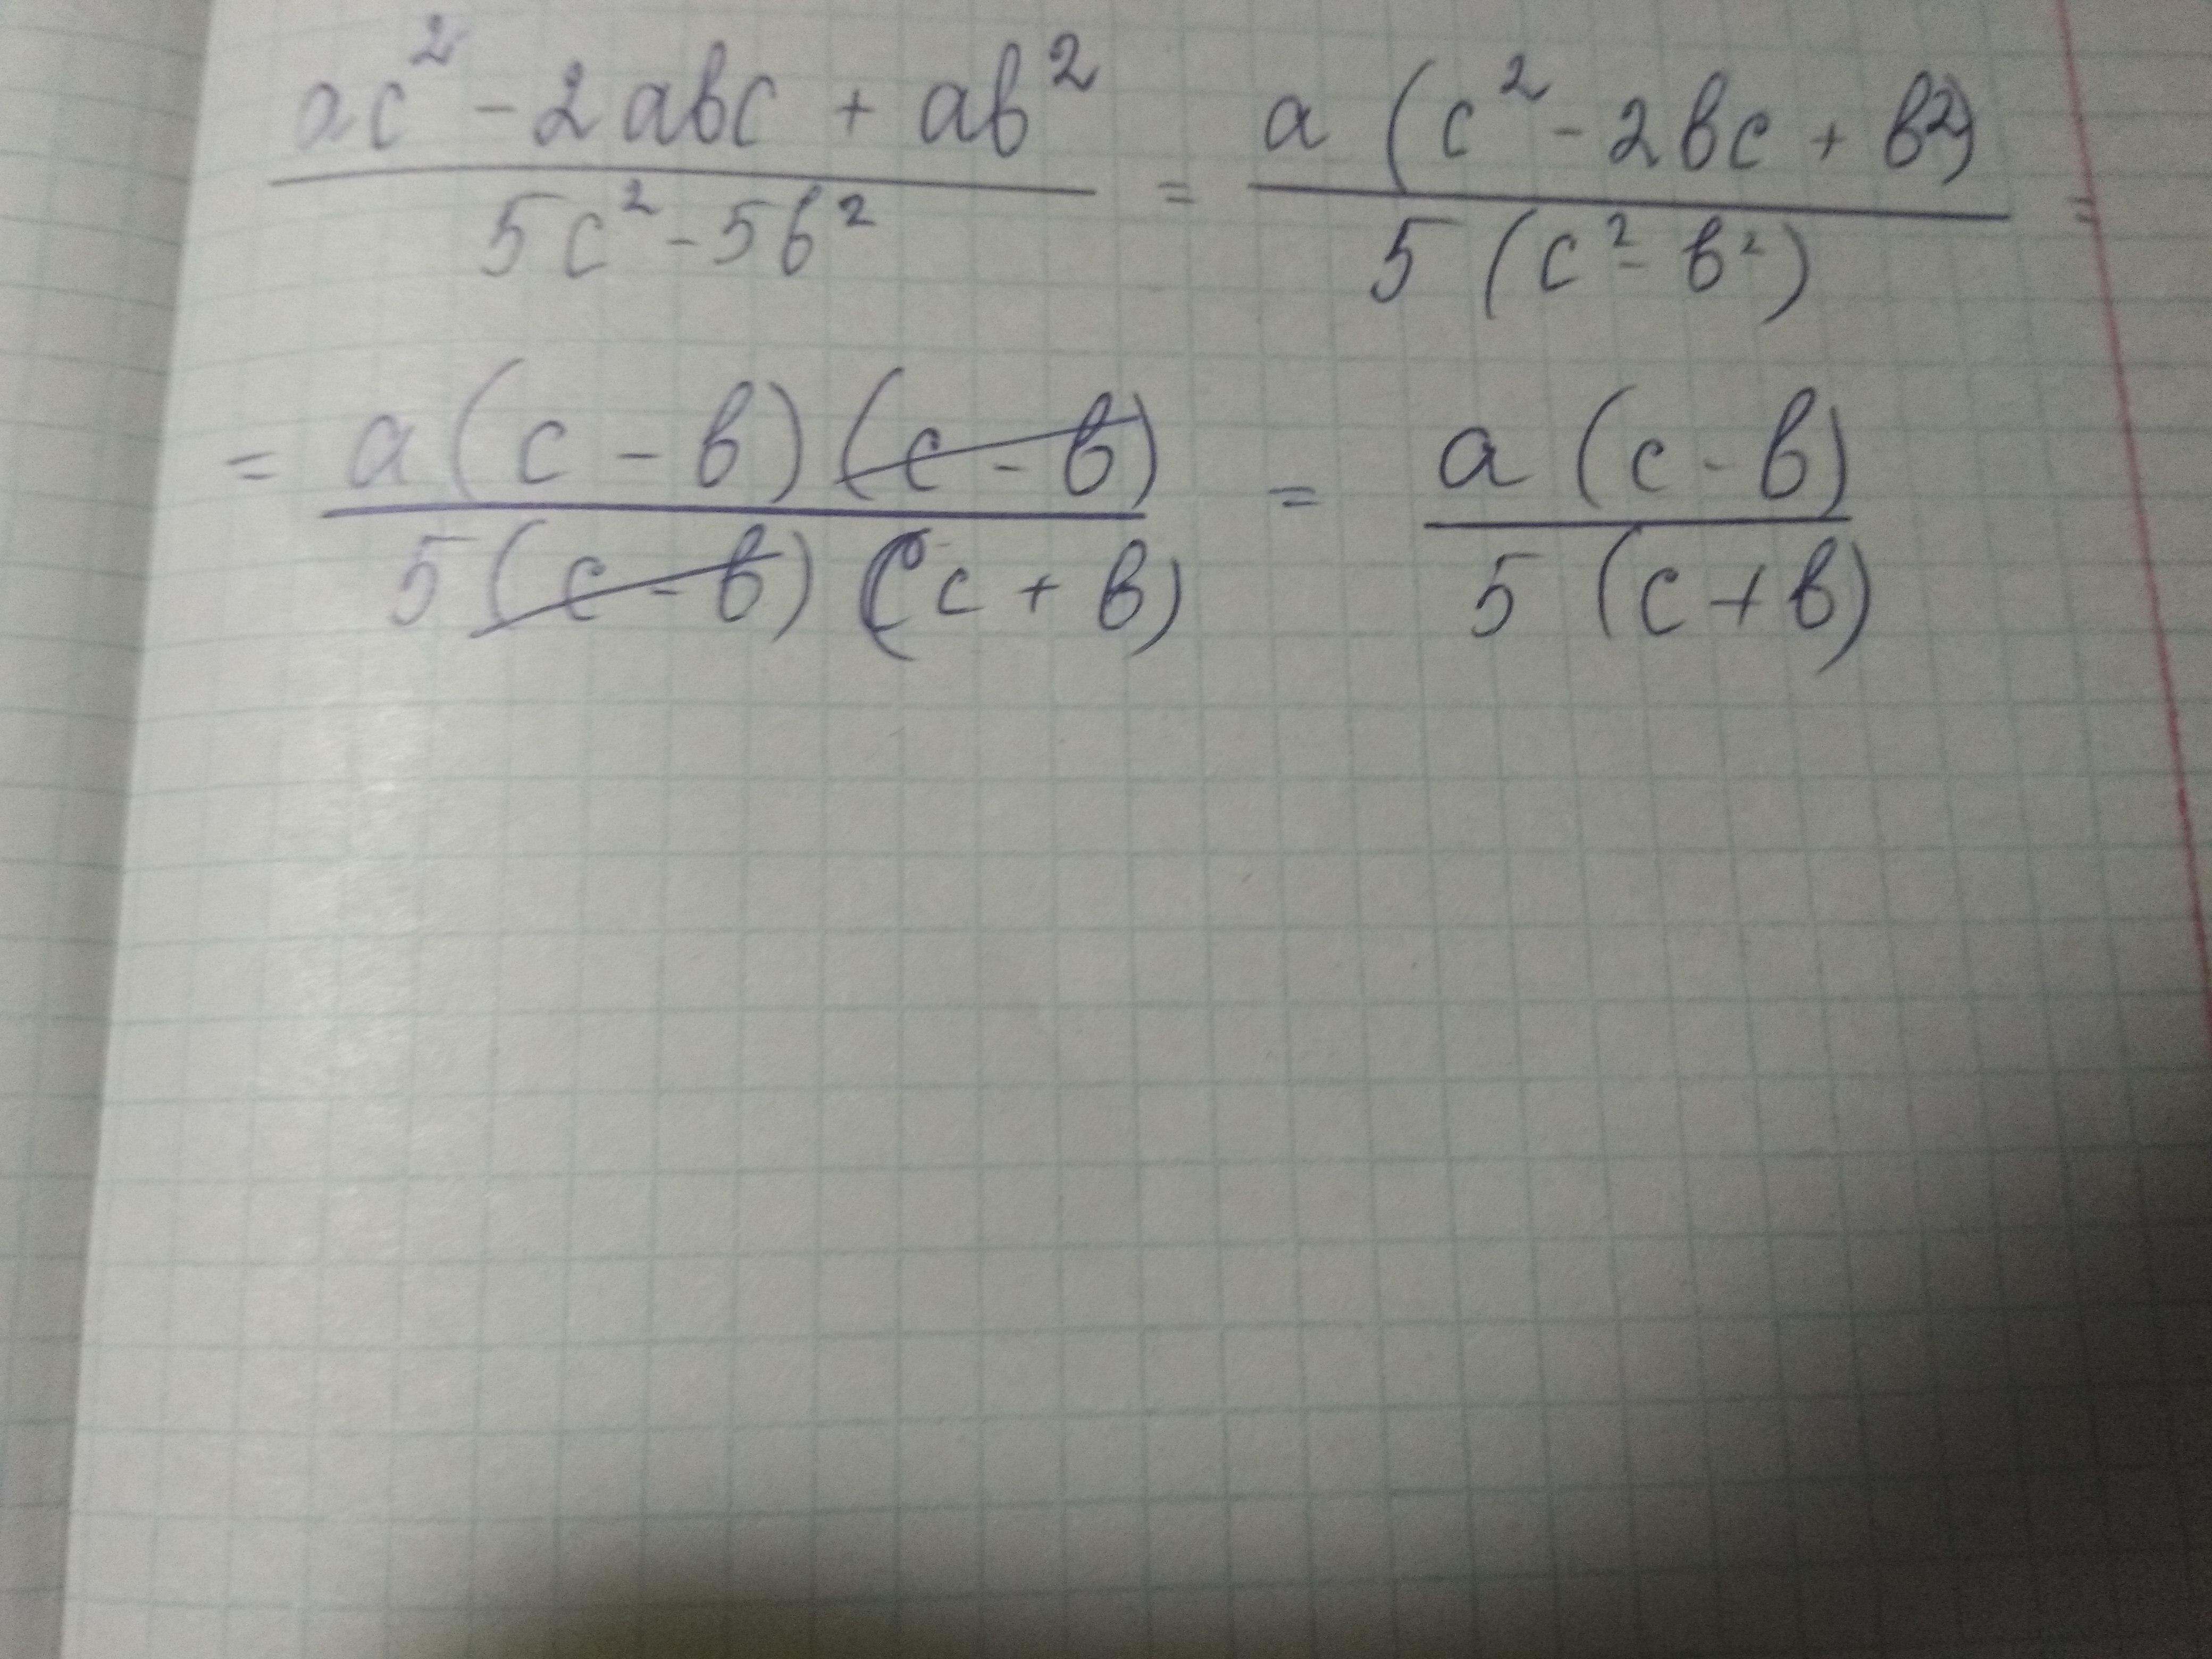 (ac² - 2abc + ab²)/(5c² - 5b²) = a(c² - 2bc + b²)/5(c² - b²) =
= a(c - b)(c - b)/5(c - b)(c + b) = a(c - b)/5(c + b)